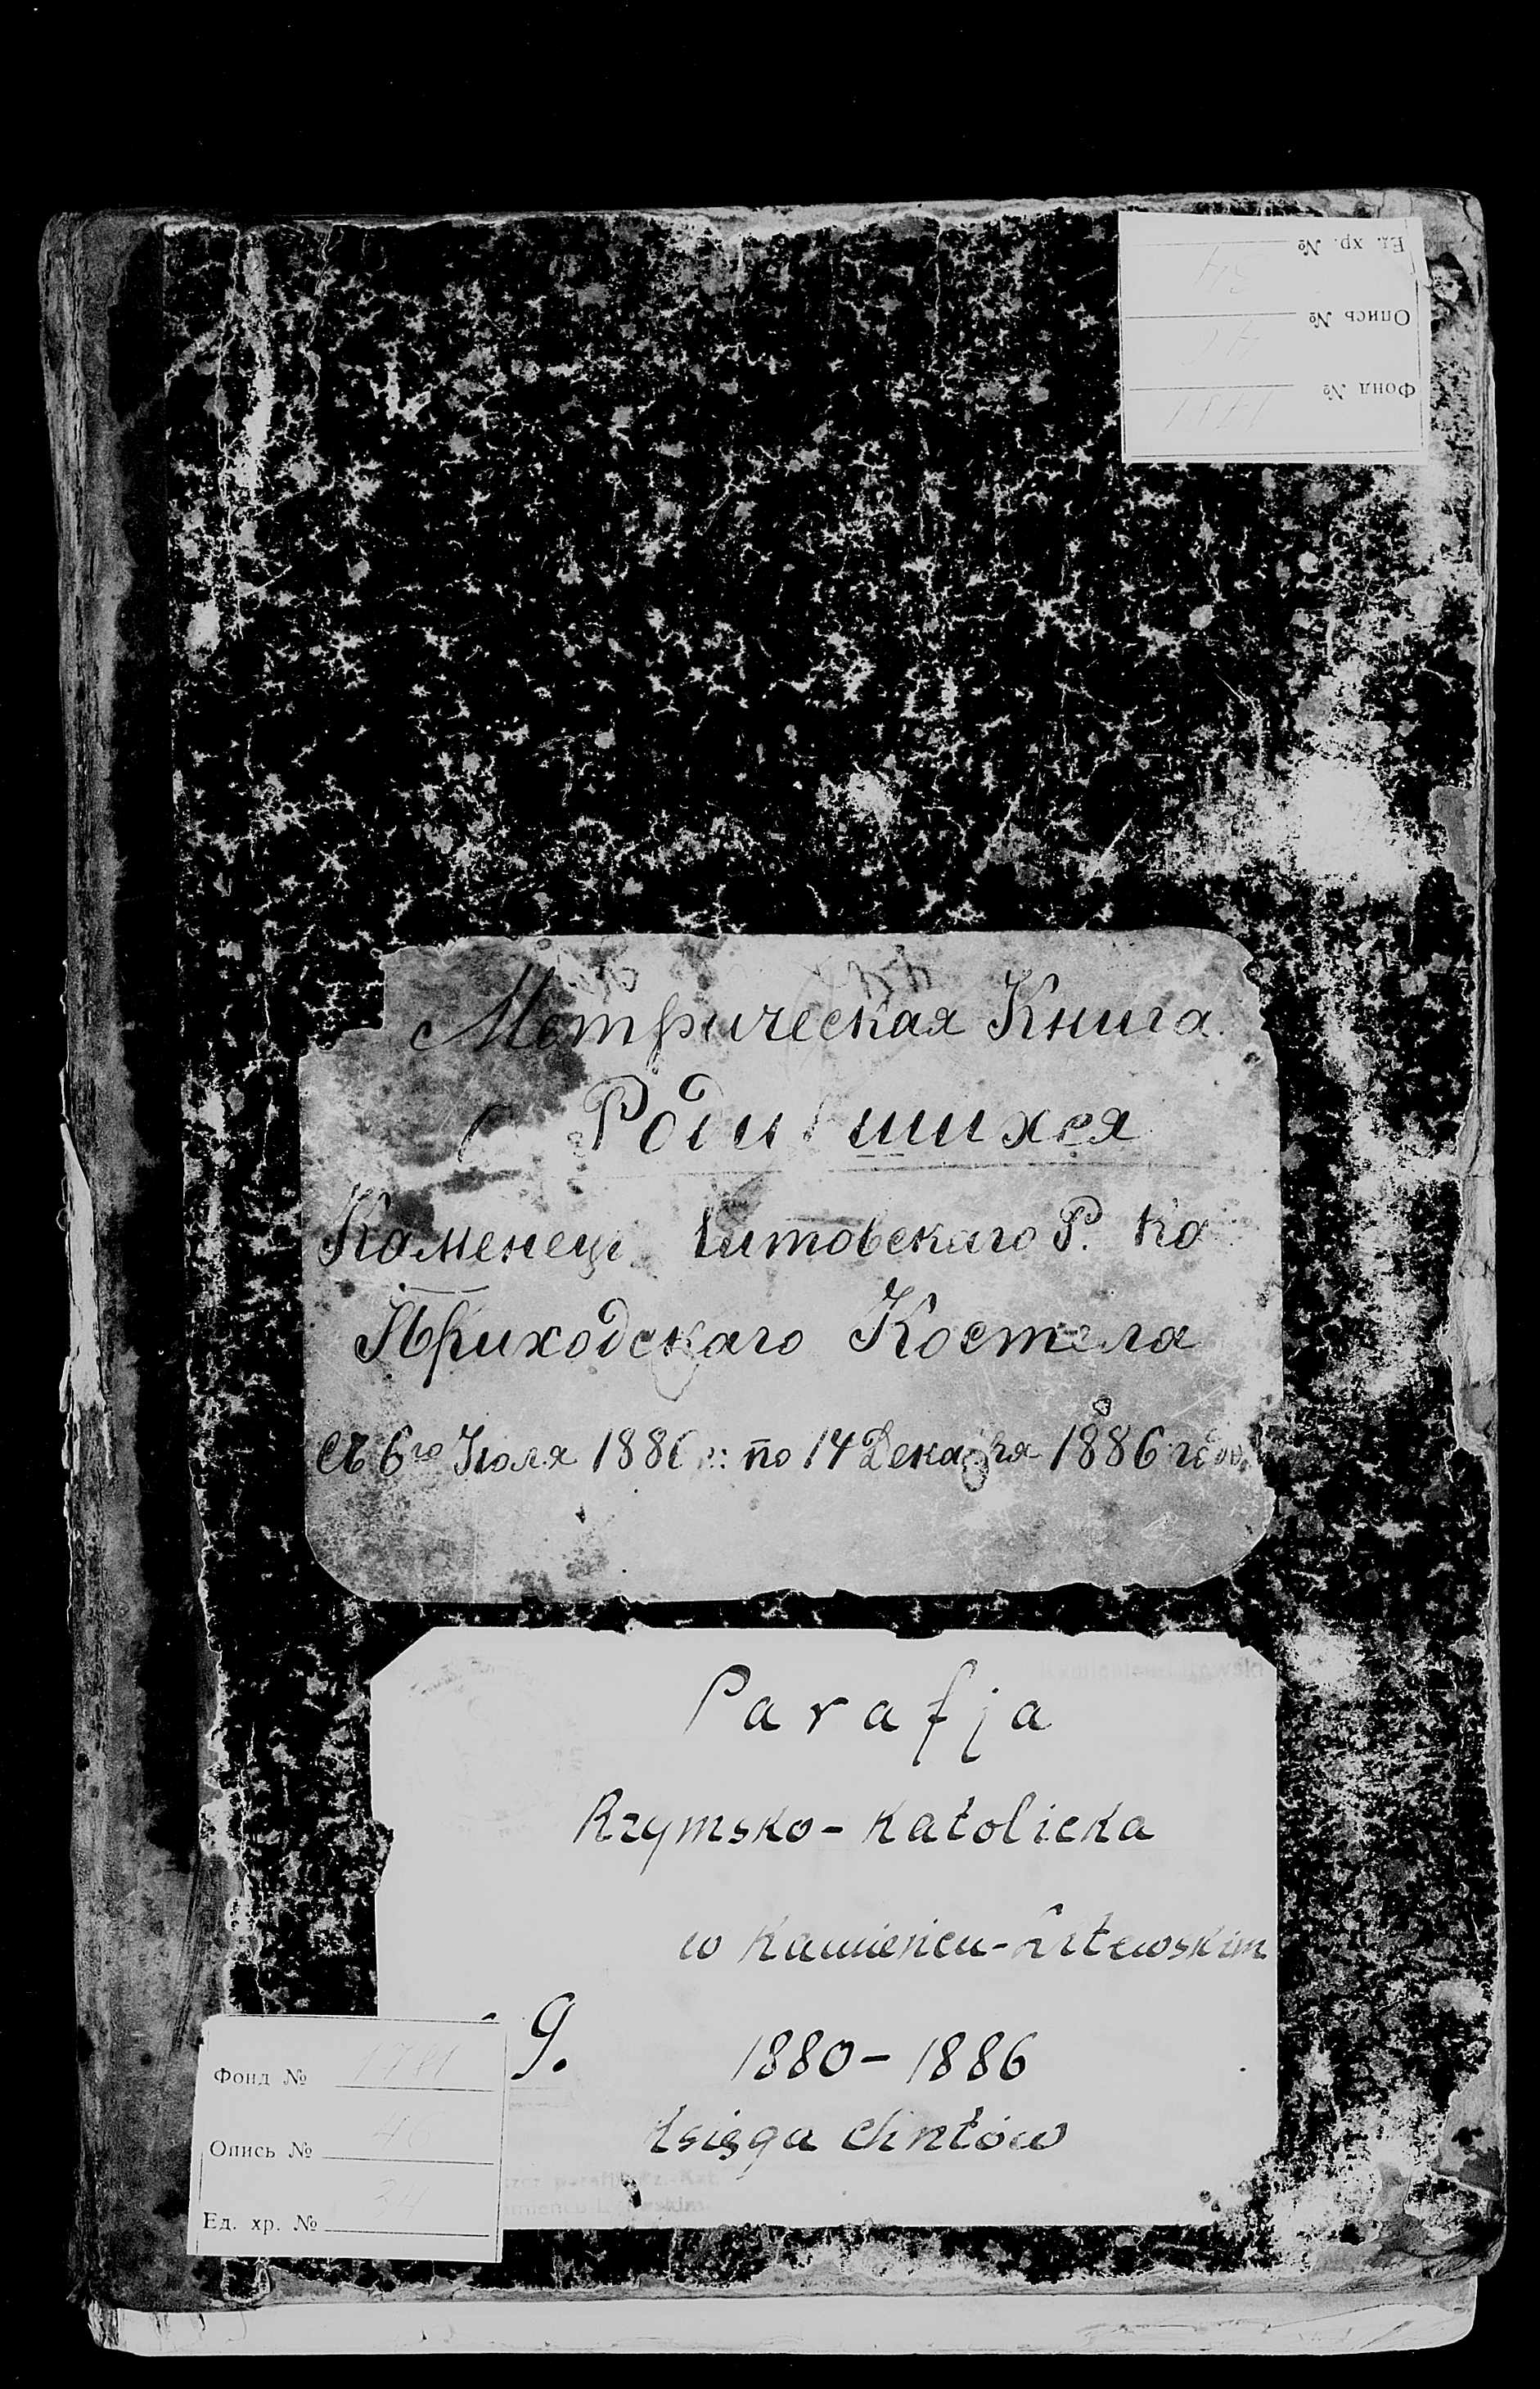 Ед. хр. №
Опись №
Фонд №
Метрическая Книга
Роди шихся
Каменец Литовскаго Р. Ко
Приходскаго Костела
съ 6го Іюля 188 г: по 14 Декабря 1886 года
Parafja
Rzymsko-Katolicka
w Kamieńcu-Litewskim
9.
1880-1886
księga chrztów
Фонд № 1781
Опись №
Ед. хр. № 34